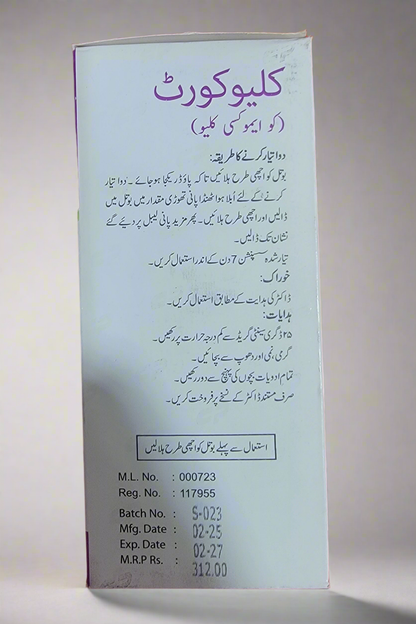 کلیوکورٹ
(کو ایموکسی کلیو)
دوا تیار کرنے کا طریقہ:
بوتل کو اچھی طرح ہلائیں تا کہ پاؤڈر یکجا ہو جائے ۔ دوا تیار
کرنے کے لئے اُبلا ہوا ٹھنڈا پانی تھوڑی مقدار میں بوتل میں
ڈالیں اور اچھی طرح ہلائیں ۔ پھر مزید پانی لیبل پر دیئے گئے
نشان تک ڈالیں ۔
تیار شدہ سسپنشن 7 دن کے اندر استعمال کریں ۔
خوراک:
ڈاکٹر کی ہدایت کے مطابق استعمال کریں ۔
ہدایات:
۲۵ ڈگری سینٹی گریڈ سے کم درجہ حرارت پر رکھیں ۔
گرمی، نمی اور دھوپ سے بچائیں ۔
تمام ادویات بچوں کی پہنچ سے دور رکھیں ۔
صرف مستند ڈاکٹر کے نسخے پر فروخت کریں ۔
استعمال سے پہلے بوتل کو اچھی طرح ہلا لیں
M.L. No. : 000723
Reg. No. : 117955
Batch No. : S-023
Mfg. Date : 02-25
Exp. Date : 02-27
M.R.P Rs. : 312.00